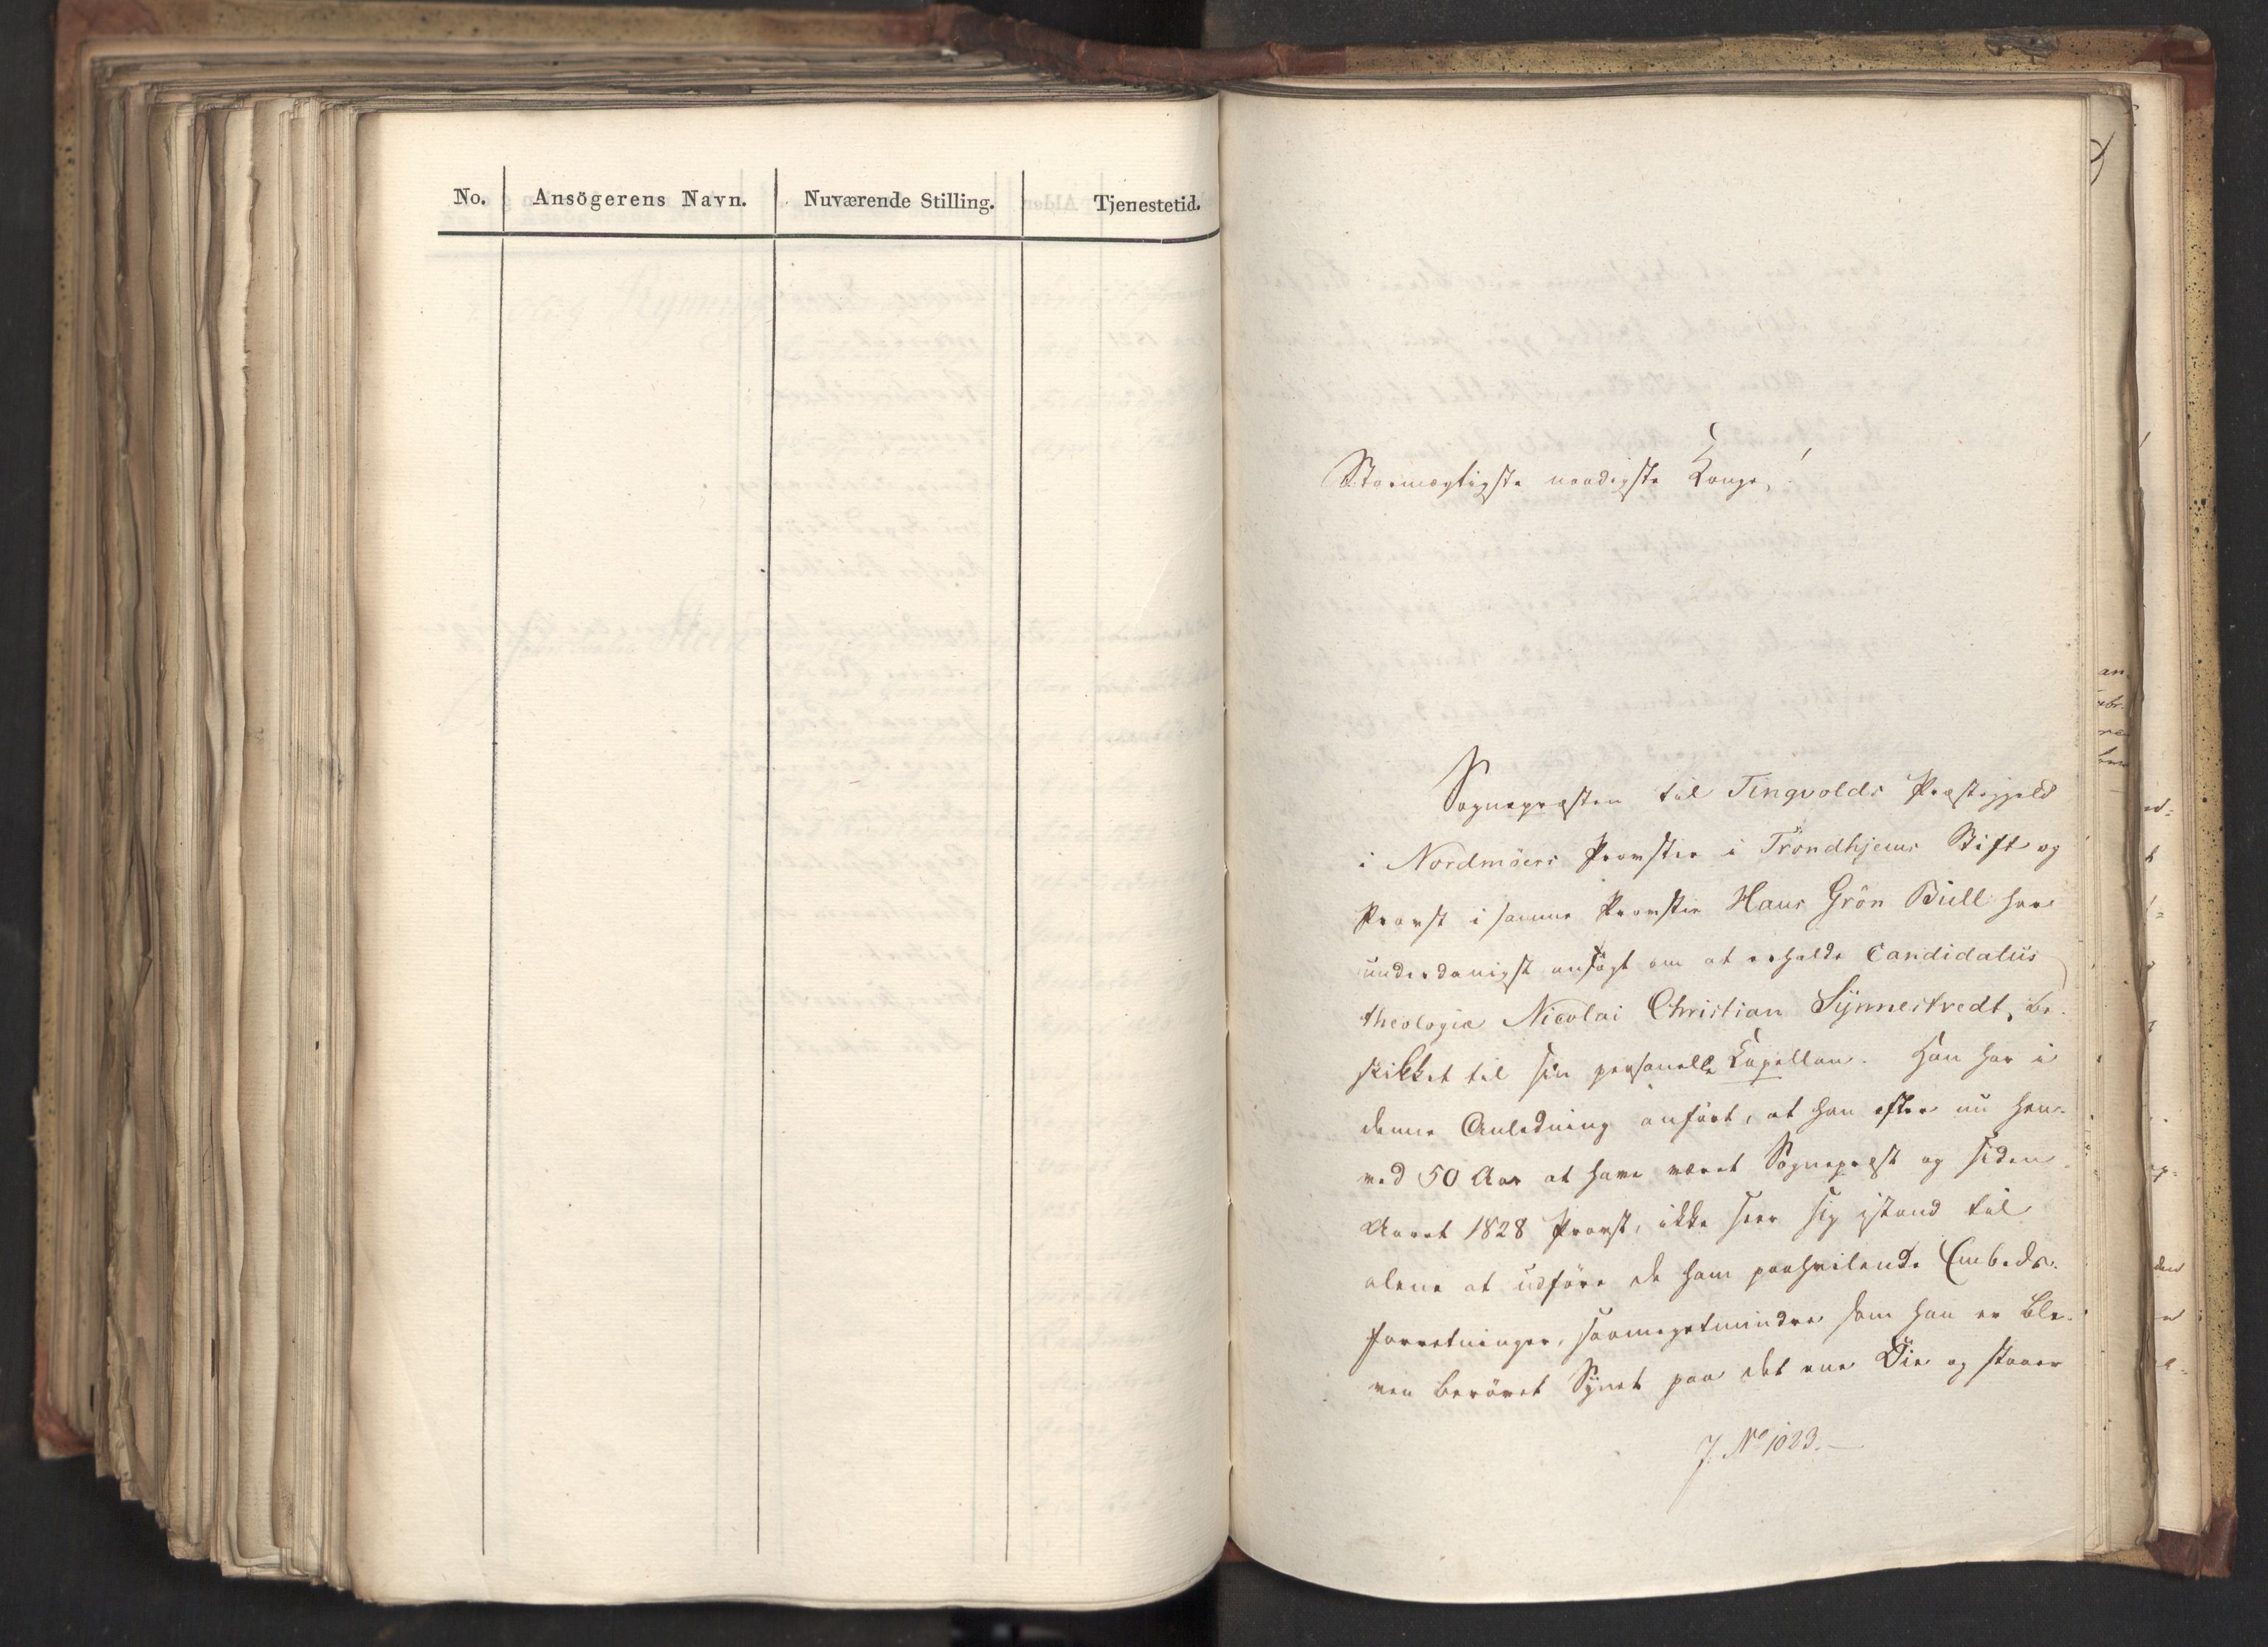 No. Ansögerens Navn. Nuværende Stilling. Tjenestetid.
Stormægtigste naadigste Konge!
Sognepræsten til Tingvolds Præstegjeld
i Nordmöers Provstie i Trondhjems Stift og
Provst i samme Provstie Hans Grön Bull har
underdanigst ansögt om at erholde Candidatus
theologiæ Nicolai Christian Synnestvedt, be-
skikket til sin personelle Kapellan. Han har i
denne Anledning anfört, at han efter nu hen-
ved 50 Aar at have været Sognepræst og siden
Aaret 1828 Provst, ikke seer sig istand til
alene at udföre de ham paahvilende Embeds-
forretninger, saameget mindre som han er ble-
ven berövet Synet paa det ene Öie og staaer
J. No 1023.